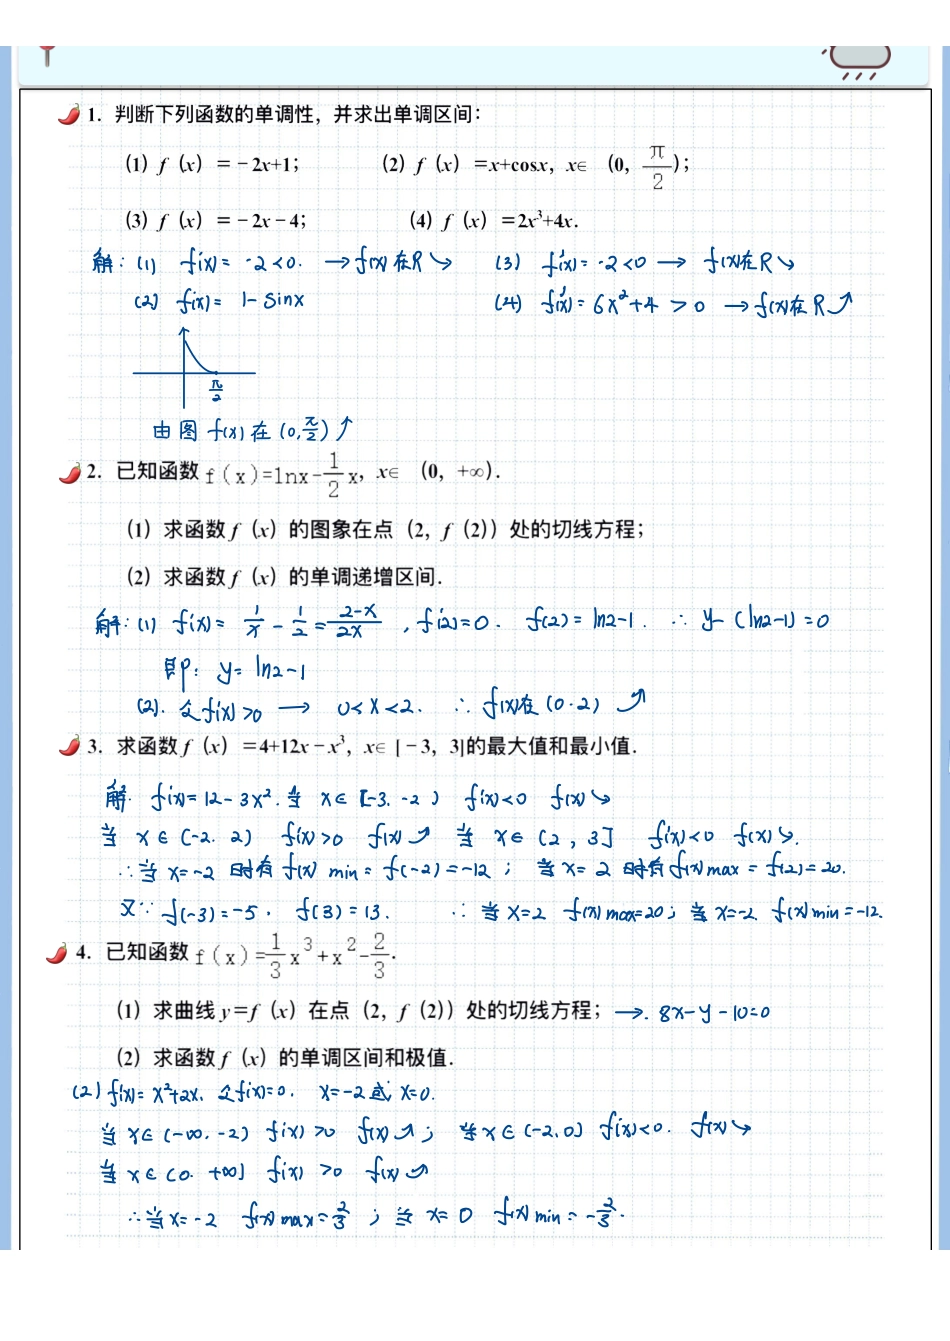 1. 判断下列函数的单调性，并求出单调区间：
(1) f（x）=－2x+1； (2) f（x）=x+cosx，x∈（0，π/2）；
(3) f（x）=－2x－4； (4) f（x）=2x³+4x.
解：(1) f'(x)= -2<0. →f(x)在R↘ (3) f'(x)= -2<0 → f(x)在R↘
(2) f'(x)= 1- sinx (4) f'(x)= 6x²+4 >0 →f(x)在R↗
π/2
由图 f(x)在(0,π/2)↑
2. 已知函数f(x)=lnx-1/2x，x∈（0，+∞）.
(1) 求函数f（x）的图象在点（2，f（2））处的切线方程；
(2) 求函数f（x）的单调递增区间.
解：(1) f'(x)= 1/x - 1/2 = 2-x/2x , f'(2)=0. f(2)= ln2-1. ∴ y-(ln2-1)=0
即：y= ln2-1
(2). 令f'(x)>0 → 0<x<2. ∴ f(x)在(0.2)↗
3. 求函数f（x）=4+12x－x³，x∈[－3，3]的最大值和最小值.
解. f'(x)=12-3x². 当 x∈[-3. -2) f'(x)<0 f(x)↘
当 x∈(-2. 2) f'(x)>0 f(x)↗ 当 x∈(2, 3] f'(x)<0 f(x)↘.
∴当 x=-2 时有 f(x) min = f(-2)=-12； 当x= 2 时有f(x)max = f(2)=20.
又∵ f(-3)=-5. f(3)=13. ∴ 当x=2 f(x)max=20；当x=-2 f(x)min=-12.
4. 已知函数f(x)=1/3x³+x²-2/3.
(1) 求曲线y=f（x）在点（2，f（2））处的切线方程； →. 8x-y-10=0
(2) 求函数f（x）的单调区间和极值.
(2) f'(x)= x²+2x. 令f'(x)=0. x=-2或 x=0.
当 x∈(-∞. -2) f'(x) >0 f(x)↗； 当x∈(-2,0] f'(x)<0. f(x)↘
当 x∈(0. +∞] f'(x) >0 f(x)↗
∴当x=-2 f(x)max=2/3；当 x= 0 f(x)min = -2/3.